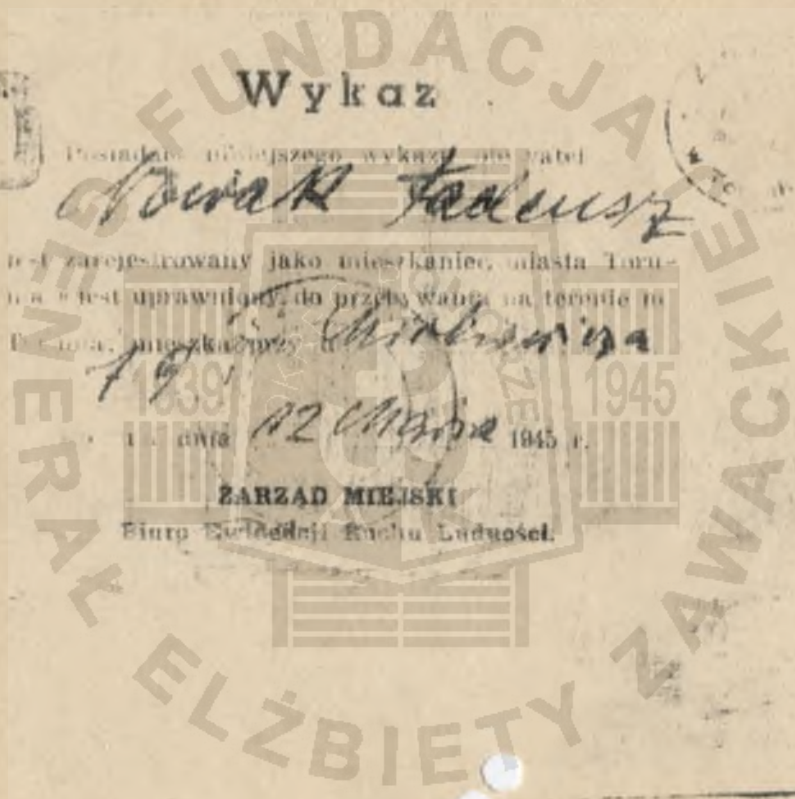 Wykaz
niniejszego wykazu
Nowak Tadeusz
jest zarejestrowany jako mieszkaniec miasta Toru-
nia i jest uprawniony do przebywania na terenie m
Torunia, mieszka przy Mickiewicza
dnia 12 Marca 1945 r.
ZARZĄD MIEJSKI
Biuro Ewidencji Ruchu Ludności.
FUNDACJA
GENERAŁ ELŻBIETY ZAWACKIEJ
1939 1945